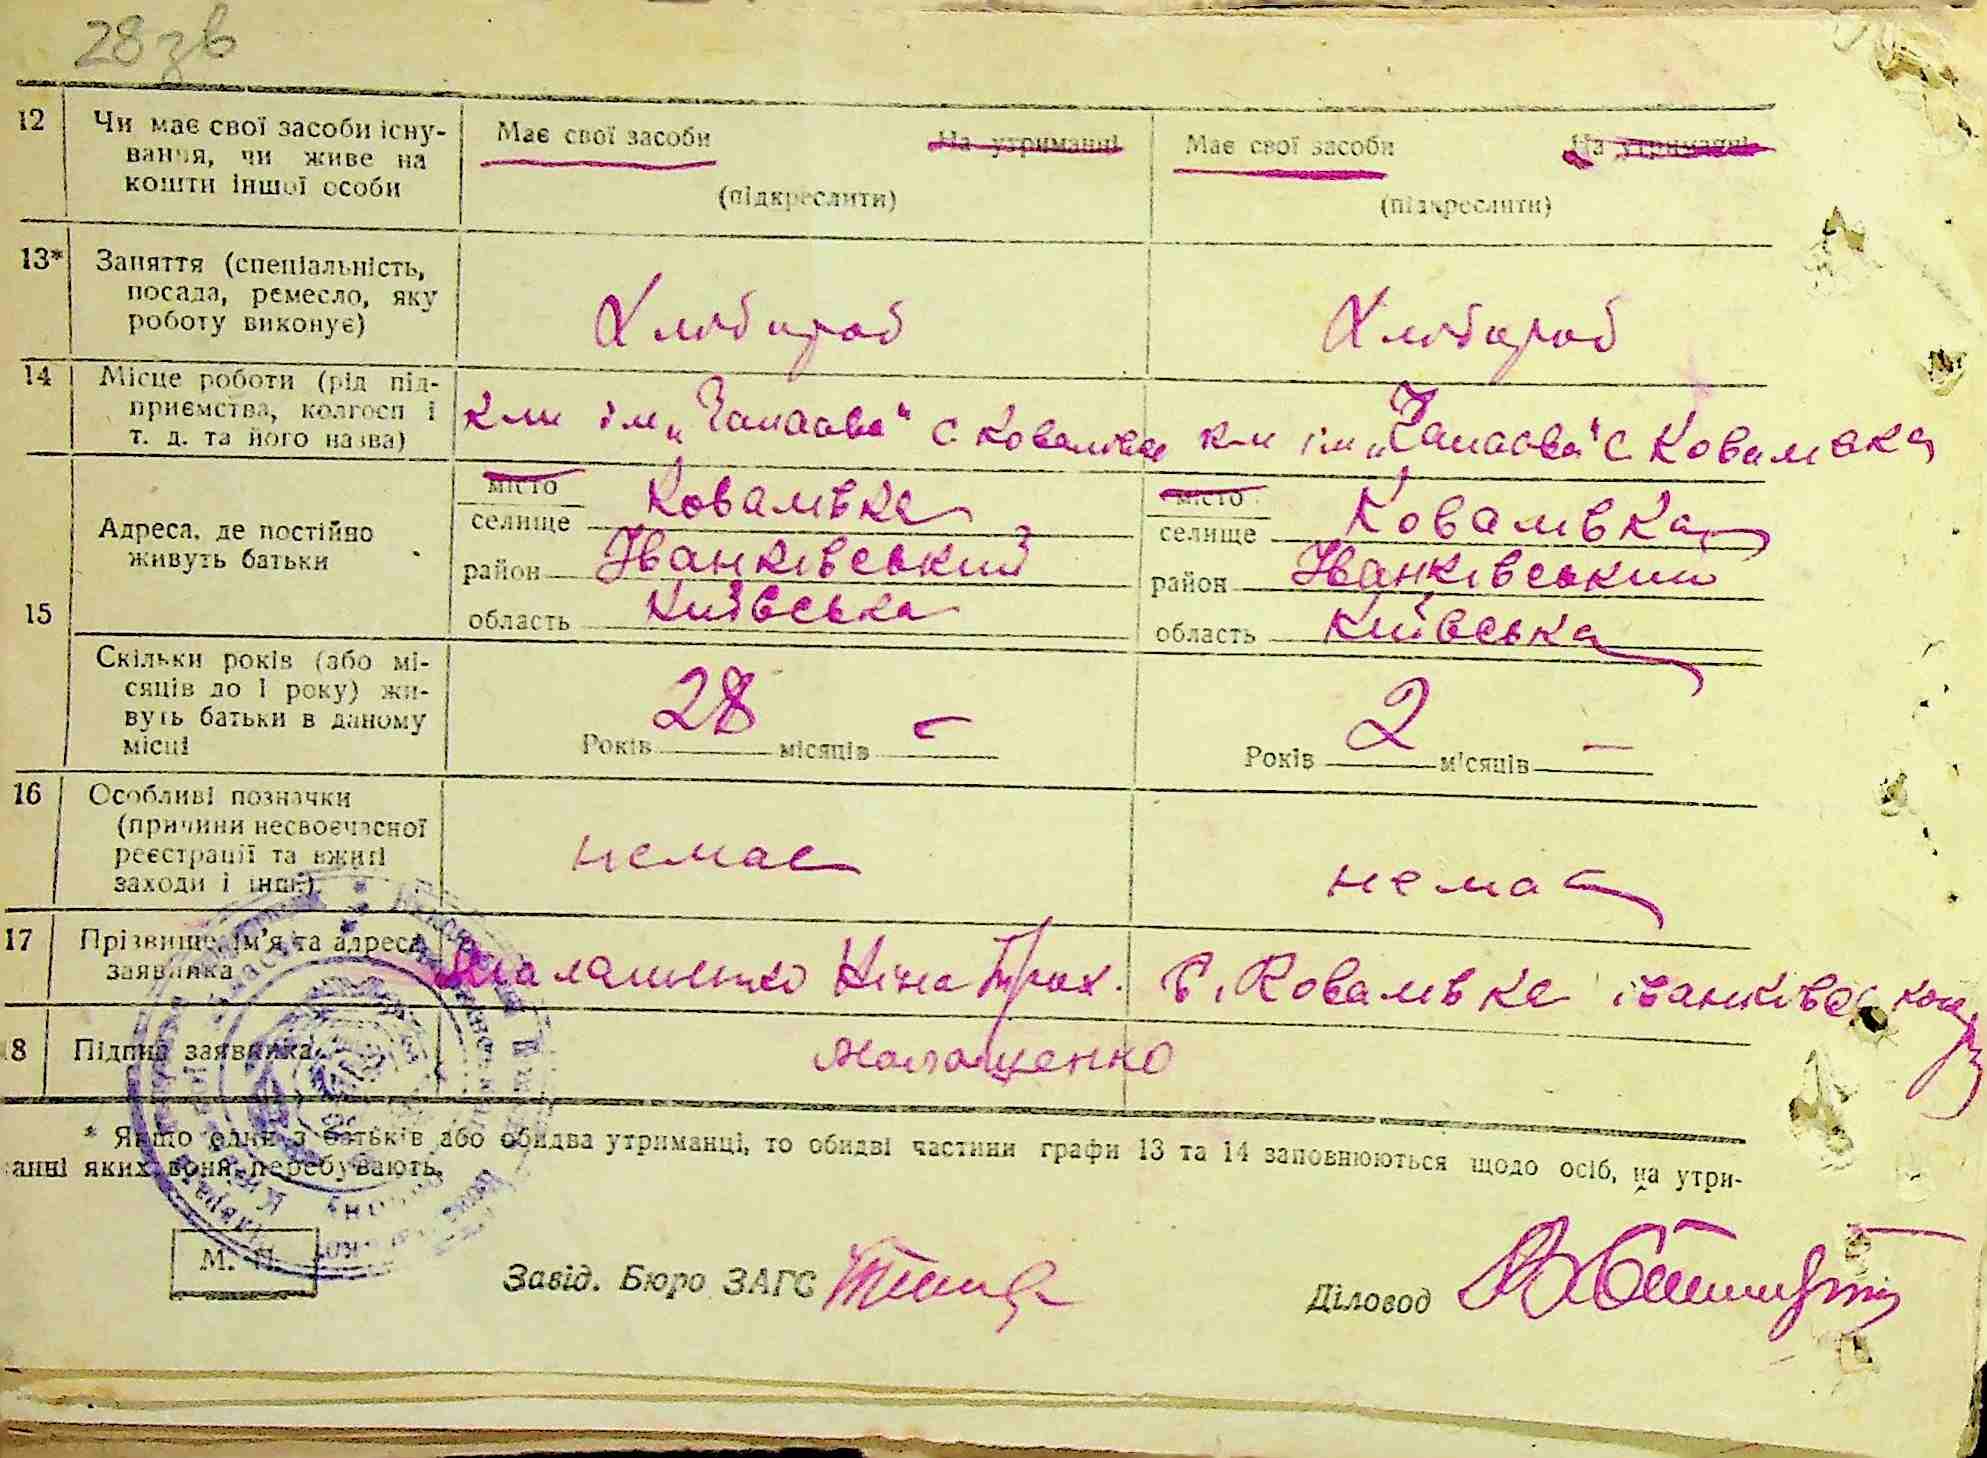 28 зв
12 Чи має свої засоби існу-
вання, чи живе на
кошти іншої особи
Має свої засоби На утриманні
(підкреслити)
Має свої засоби На утриманні
(підкреслити)
13* Заняття (спеціальність,
посада, ремесло, яку
роботу виконує)
Хлібороб
Хлібороб
14 Місце роботи (рід під-
приємства, колгосп і
т. д. та його назва)
к-п ім „Чапаєва“ с Ковалівка
к-п ім „Чапаєва“ с Ковалівка
15 Адреса, де постійно
живуть батьки
місто
селище Ковалівка
район Іванківський
область Київська
місто
селище Ковалівка
район Іванківський
область Київська
Скільки років (або мі-
сяців до 1 року) жи-
вуть батьки в даному
місці
Років 28 місяців -
Років 2 місяців -
16 Особливі позначки
(причини несвоєчасної
реєстрації та вжиті
заходи і інші).
немає
немає
17 Прізвище, ім'я та адреса
заявника
Малашенко Ніна Трох. с. Ковалівка
18 Підпис заявника
Малащенко
* Якщо один з батьків або обидва утриманці, то обидві частини графи 13 та 14 заповнюються щодо осіб, на утри-
анні яких вони перебувають.
М. П.
Завід. Бюро ЗАГС
Діловод